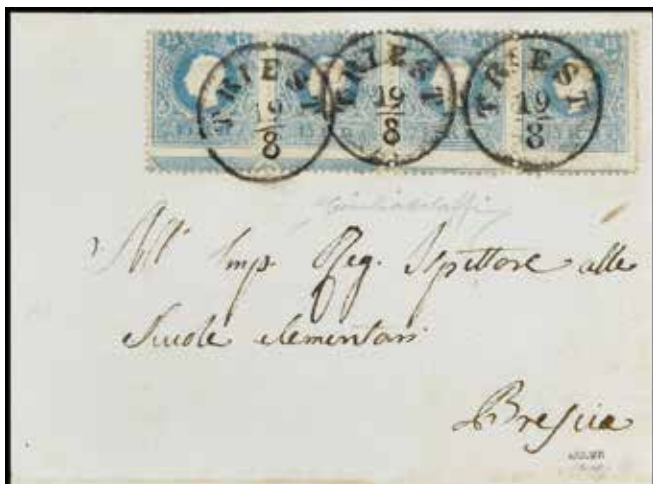 TRIEST TRIEST TRIEST
19 19 19
8 8 8
All' Imp. Reg. Ispettore alle
Scuole elementari
Brescia